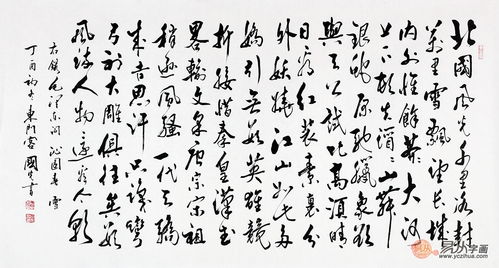 北國風光千里冰封
萬里雪飄望長城
内外惟餘莽莽大河
上下頓失滔滔山舞
銀蛇原馳蠟象欲
與天公試比高須晴
日看紅裝素裹分
外妖嬈江山如此多
嬌引無數英雄競
折腰惜秦皇漢武
畧輸文采唐宗宋祖
稍遜風騷一代天驕
成吉思汗只識彎
弓射大雕俱往矣數
風流人物還看今朝
右錄毛澤東詞沁園春雪
丁酉初東門客國書
易从字画
www.yczihua.com